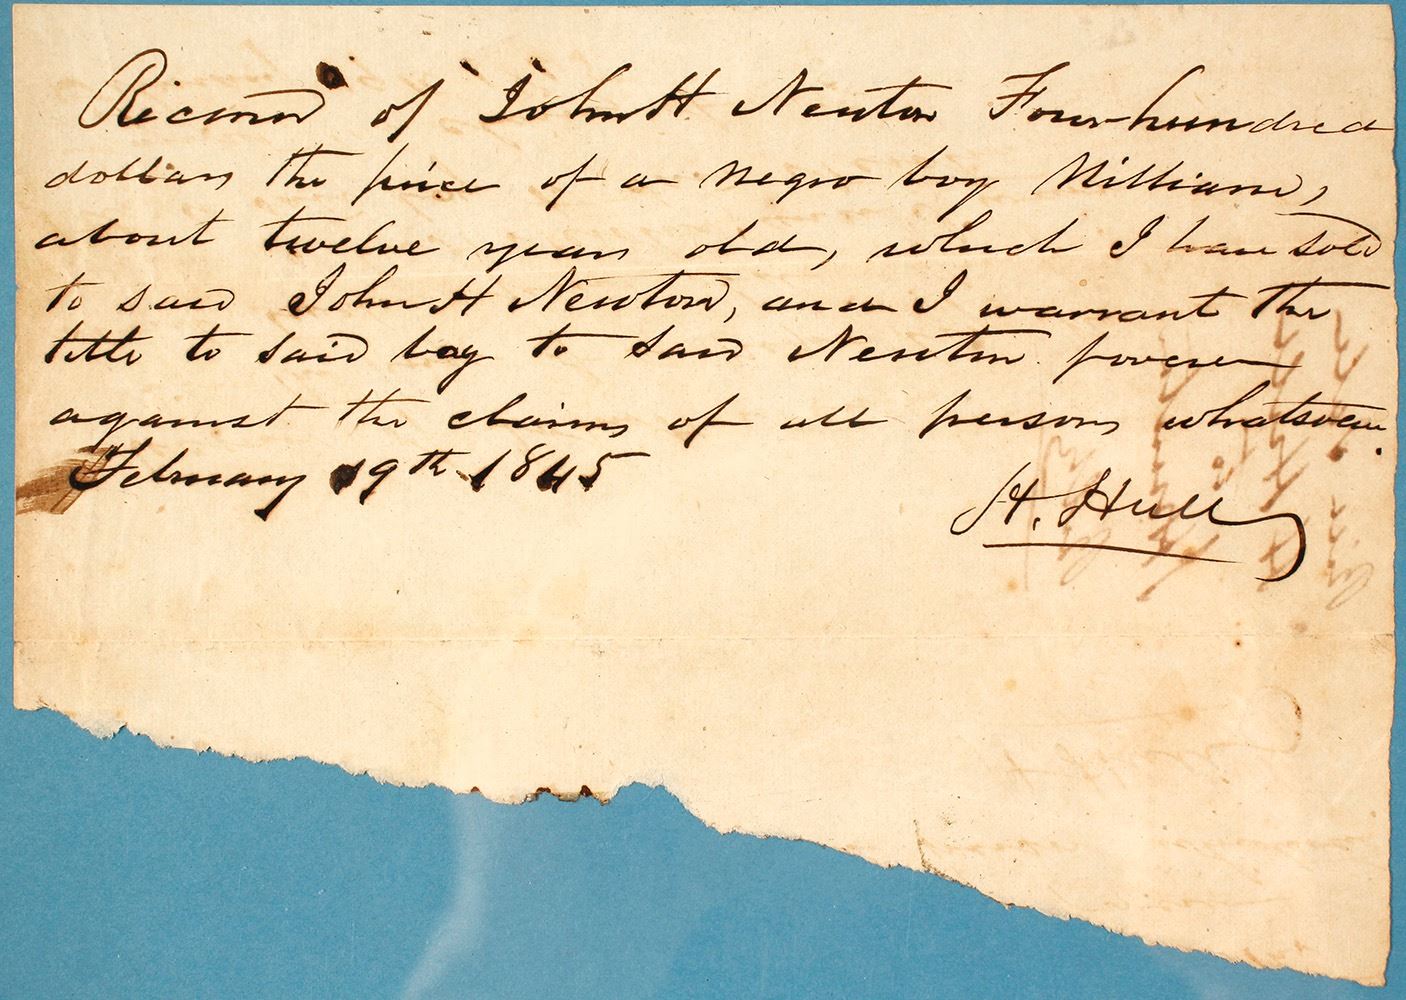 Received of John H Newton Four hundred
dollars the price of a negro boy William,
about twelve years old, which I have sold
to said John H Newton, and I warrant the
title to said boy to said Newton forever
against the claims of all persons whatsoever.
February 19th 1845
H. Hull